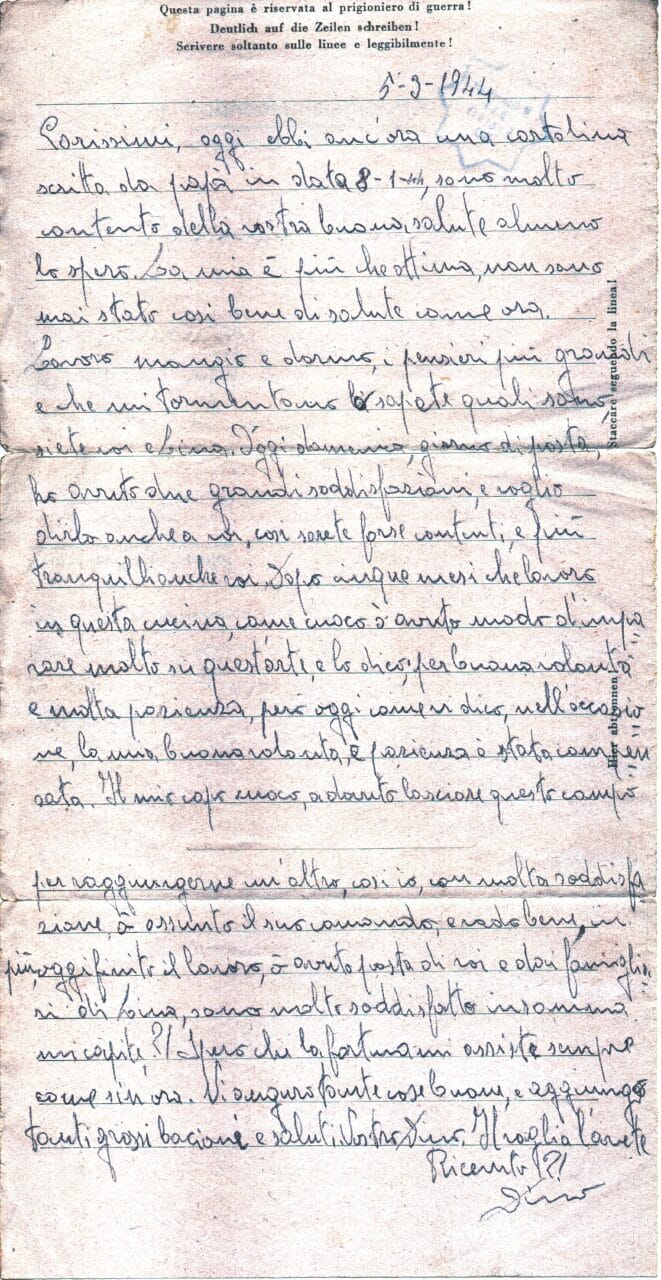 Questa pagina è riservata al prigioniero di guerra!
Deutlich auf die Zeilen schreiben!
Scrivere soltanto sulle linee e leggibilmente!
5-3-1944
Carissimi, oggi ebbi ancora una cartolina
scritta da papà in data 8-1-44, sono molto
contento della vostra buona salute almeno
lo spero. La mia è più che ottima, non sono
mai stato così bene di salute come ora.
Lavoro mangio e dormo, i pensieri più grandi
e che mi tormentano lo sapete quali sono
siete voi e Lina. Oggi domenica, giorno di posta,
ho avuto due grandi soddisfazioni, e voglio
dirlo anche a voi, così sarete forse contenti, e più
tranquilli anche voi. Dopo cinque mesi che lavoro
in questa cucina, come cuoco ò avuto modo d'impa
rare molto su quest'arte, e lo dico, per buona volontà
e molta pazienza, però oggi come vi dico, nell'occasio
ne, la mia buona volontà, e pazienza è stata compen
sata. Il mio capo cuoco, a dovuto lasciare questo campo
per raggiungerne un'altro, così io, con molta soddisfa
zione, ò assunto il suo comando, e vado bene, in
più, oggi finito il lavoro, ò avuto posta di voi e dai famiglia
ri di Lina, sono molto soddisfatto insomma
mi capite?! Spero che la fortuna mi assista sempre
come sin'ora. Vi auguro tante cose buone, e aggiungo
tanti grossi bacioni e saluti. Vostro Dino. Il vaglia l'avete
Ricevuto!?!
Dino
Staccare seguendo la linea!
Hier abtrennen!